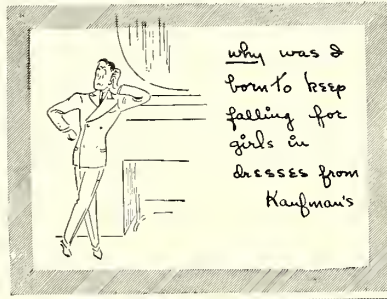 why was I
born to keep
falling for
girls in
dresses from
Kaufman's